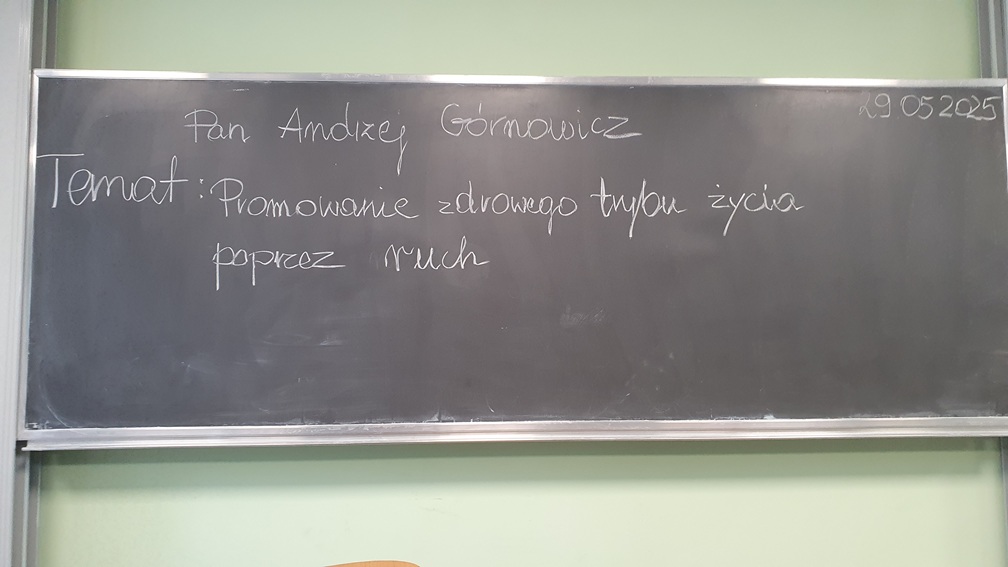 29.05.2025
Pan Andrzej Górnowicz
Temat: Promowanie zdrowego trybu życia
poprzez ruch